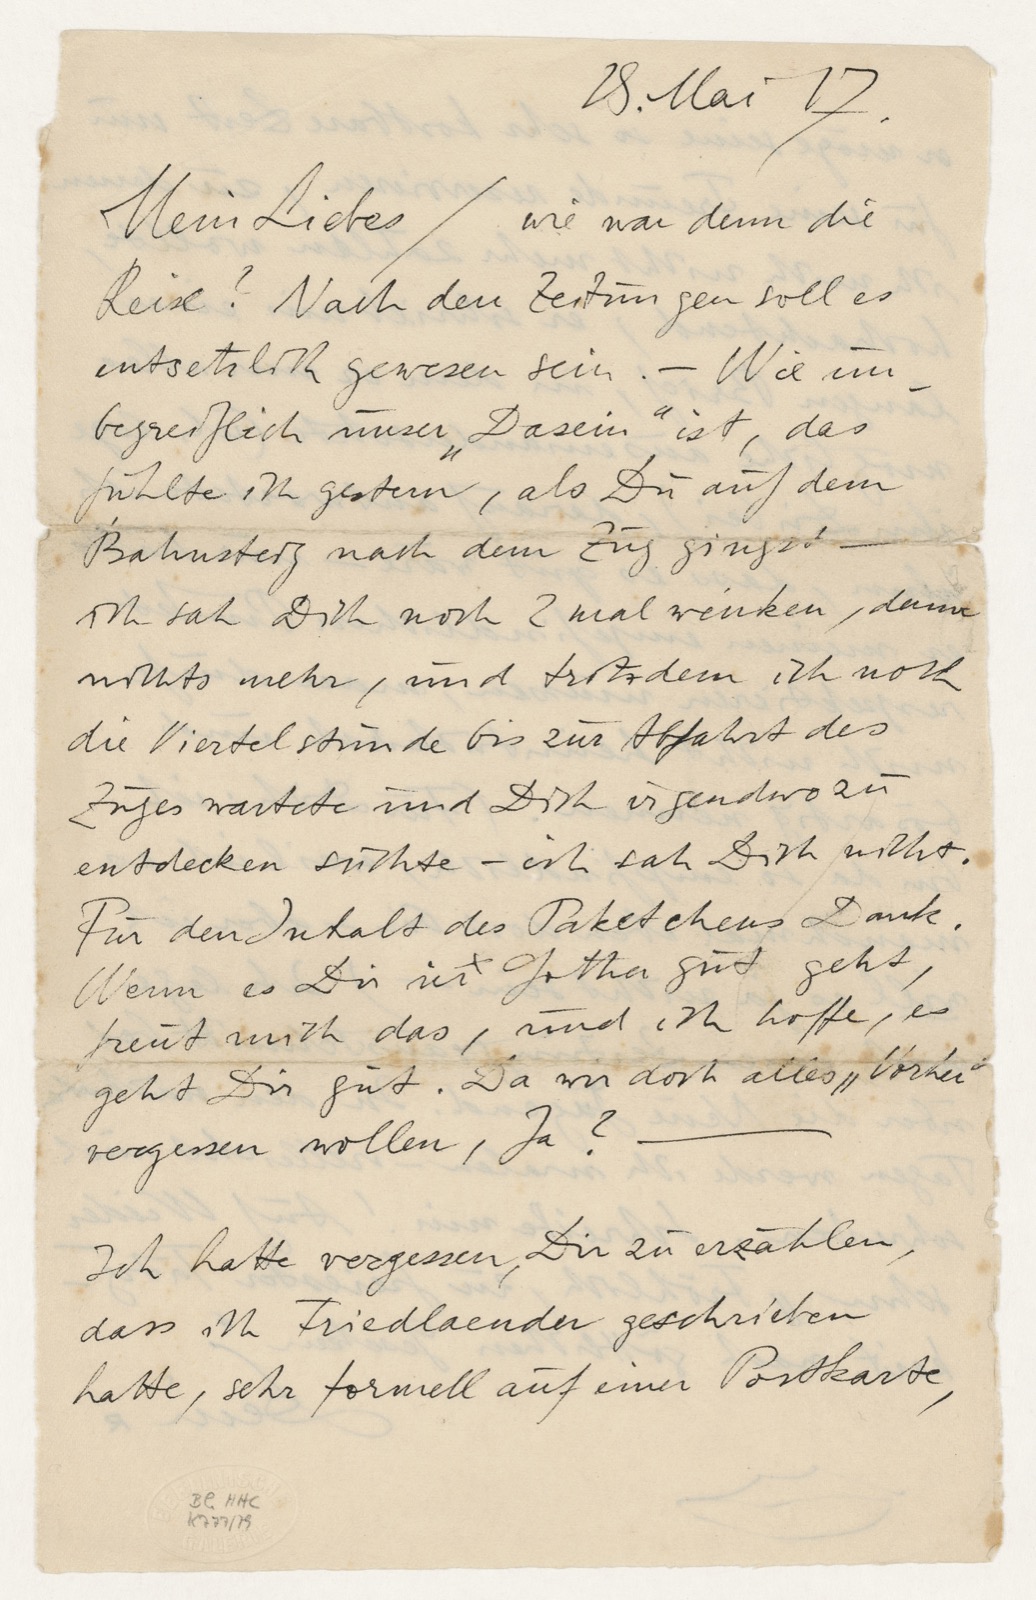 28. Mai 17.
Mein Liebes / wie war denn die
Reise? Nach den Zeitungen soll es
entsetzlich gewesen sein. – Wie un-
begreiflich unser „Dasein“ ist, das
fühlte ich gestern, als Du auf dem
Bahnsteig nach dem Zug gingst —
ich sah Dich noch 2 mal winken, dann
nichts mehr, und trotzdem ich noch
die Viertelstunde bis zur Abfahrt des
Zuges wartete und Dich irgendwo zu
entdecken suchte – ich sah Dich nicht.
Für den Inhalt des Paketchens Dank.
Wenn es Dir in Gotha gut geht,
freut mich das, und ich hoffe, es
geht Dir gut. Da wir doch alles „Vorher“
vergessen wollen, Ja? —
Ich hatte vergessen, Dir zu erzählen,
dass ich Friedlaender geschrieben
hatte, sehr formell auf einer Postkarte,
BG HHC
K777/79